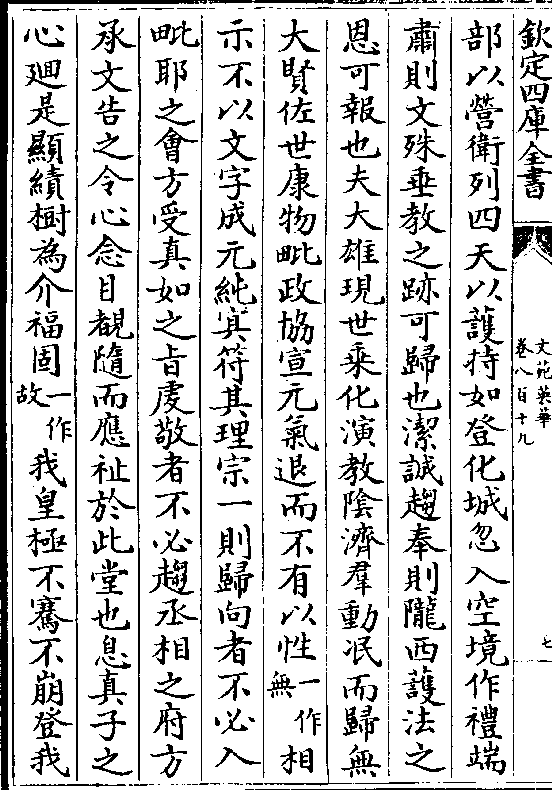 欽定四庫全書
文苑英華
卷八百十九
七
部以營衛列四天以護持如登化城忽入空境作禮端
肅則文殊垂教之跡可歸也潔誠趨奉則隴西護法之
恩可報也夫大雄現世乘化演教陰濟羣動泯而歸無
大賢佐世康物毗政協宣元氣退而不有以性一作無相
示不以文字成元純寅符其理宗一則歸向者不必入
毗耶之會方受真如之旨虔敬者不必趨丞相之府方
承文告之令心念目覩隨而應祉於此堂也息真子之
心廻是顯績樹為介福固一作故我皇極不騫不崩登我